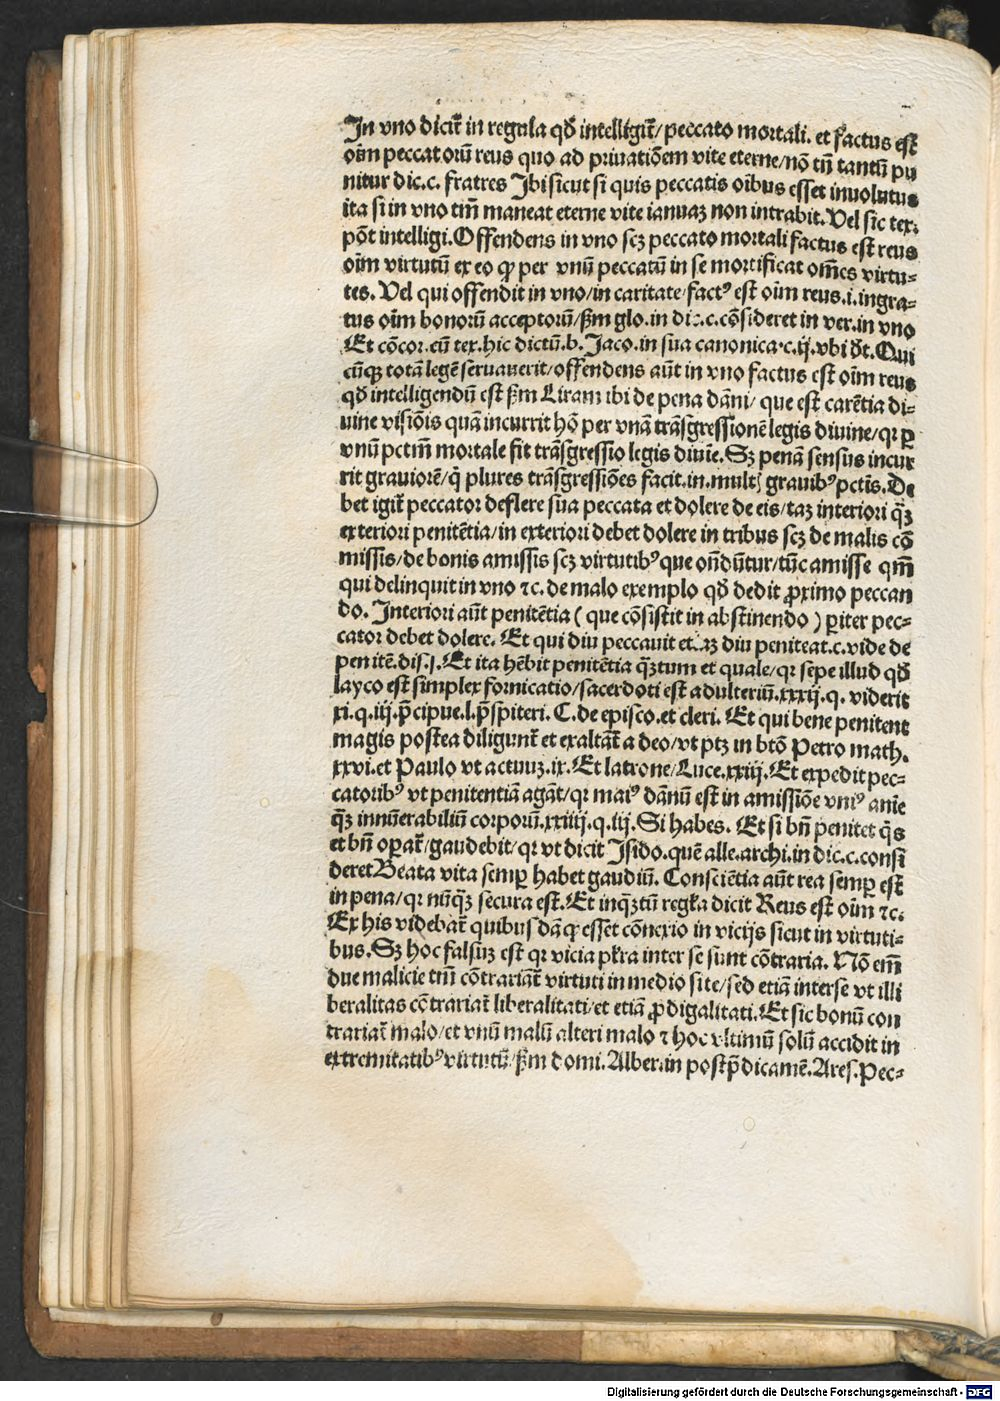 In vno dicit᷑ in regula qđ intelligit᷑/peccato mortali. et factus est
oīm peccatorū reus quo ad priuatiōem vite eterne/nō tn̄ tantū pu
nitur dic.c. fratres Ibi sicut si quis peccatis oībus esset inuolutus
ita si in vno tm̄ maneat eterne vite ianuaꝫ non intrabit. Vel sic tex.
pōt intelligi. Offendens in vno scꝫ peccato mortali factus est reus
oīm virtutū ex eo ꝙ per vnū peccatū in se mortificat om̄es virtu⸗
tes. Vel qui offendit in vno/in caritate/factꝰ est oīm reus.i.ingra⸗
tus oīm bonorū acceptorū/ẜm glo.in dic.c.cōsideret in ver.in vno
Et cōcor.cū tex.hic dictū.b. Jaco.in sua canonica.c.ij.vbi dꝛ. Qui
cūqꝫ totā legē seruauerit/offendens aūt in vno factus est oīm reus
qđ intelligendū est ẜm Liram ibi de pena dāni/ que est carētia di⸗
uine visiōis quā incurrit hō per vnā trāsgressionē legis diuine/qꝛ ꝑ
vnū pctm̄ mortale fit trāsgressio legis diuīe. Sꝫ penā sensus incur
rit grauiorē/q̄ plures trāsgressiōes facit.in.multꝭ grauibꝰ pctīs. De
bet igit᷑ peccator deflere sua peccata et dolere de eis/taꝫ interiori q̄ꝫ
exteriori penitētia/in exteriori debet dolere in tribus scꝫ de malis cō
missis/de bonis amissis scꝫ virtutibꝰ que on̄dūtur/tūc amisse qm̄
qui delinquit in vno ⁊c. de malo exemplo qđ dedit ꝓximo peccan
do. Interiori aūt penitētia ( que cōsistit in abstinendo ) ꝑiter pec⸗
cator debet dolere. Et qui diu peccauit et diu peniteat.c.vide de
penitē.dis.j. Et ita hēbit penitētia q̄ꝫtum et quale/qꝛ sepe illud qđ
layco est simplex fornicatio/sacerdoti est adulteriū.xxxij.q. viderit
xi.q.iij.p̄cipue.l.p̄spiteri. C. de episco.et cleri. Et qui bene penitent
magis postea diligunt᷑ et exaltāt᷑ a deo/vt ptꝫ in btō Petro math.
xxvi.et Paulo vt actuuꝫ.ix. Et latrone/Luce.xxiij. Et expedit pec⸗
catoribꝰ vt penitentiā agāt/qꝛ maiꝰ dānū est in amissiōe vniꝰ anīe
q̄ꝫ innūerabiliū corporū.xxiiij.q.iij. Si habes. Et si bn̄ penitet q̄s
et bn̄ oꝑat᷑/gaudebit/qꝛ vt dicit Isido.quē alle.archi.in dic.c.consi
deret Beata vita semꝑ habet gaudiū. Consciētia aūt rea semꝑ est
in pena/qꝛ nūq̄ꝫ secura est. Et inq̄ꝫtū regła dicit Reus est oīm ⁊c.
Ex his videbat᷑ quibusdā ꝙ esset cōnexio in vicijs sicut in virtuti⸗
bus. Sꝫ hoc falsuꝫ est qꝛ vicia płra inter se sunt cōtraria. Nō em̄
due malicie tm̄ cōtrariāt᷑ virtuti in medio site/sed etiā interse vt illi
beralitas cōtrariat᷑ liberalitati/et etiā ꝓdigalitati. Et sic bonū con
trariat᷑ malo/et vnū malū alteri malo ⁊ hoc vltimū solū accidit in
extremitatibꝰ virtutū/ẜm domi. Alber.in postp̄dicamē. Ares. Pec⸗
Digitalisierung gefördert durch die Deutsche Forschungsgemeinschaft - DFG